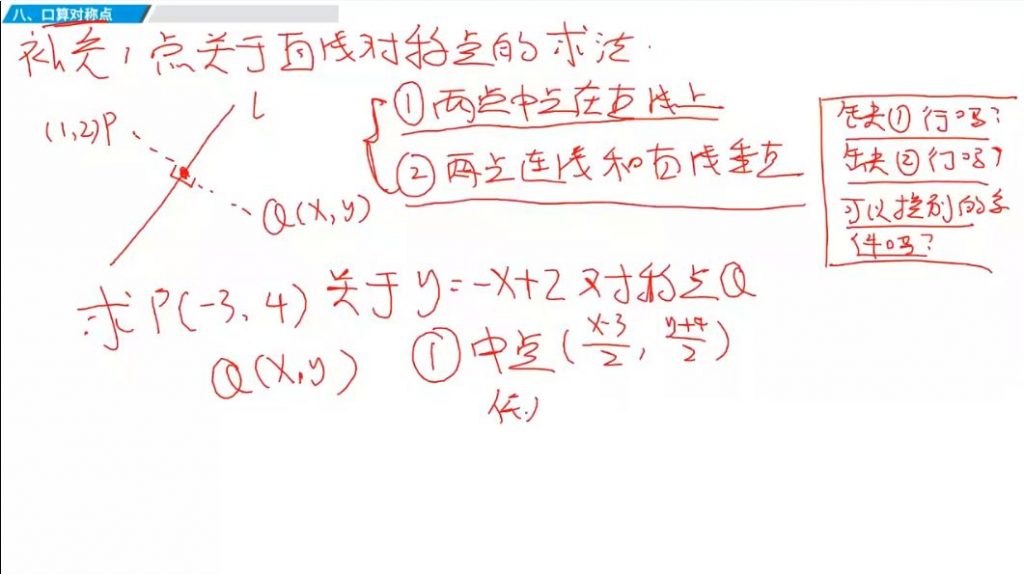 八、口算对称点
补充，点关于直线对称点的求法.
L
(1,2)P
Q(x,y)
①两点中点在直线上
②两点连线和直线垂直
缺失①行吗?
缺失②行吗?
可以换别的条
件吗?
求P(-3,4)关于y=-x+2对称点Q
Q(x,y)
①中点(x-3/2, y+4/2)